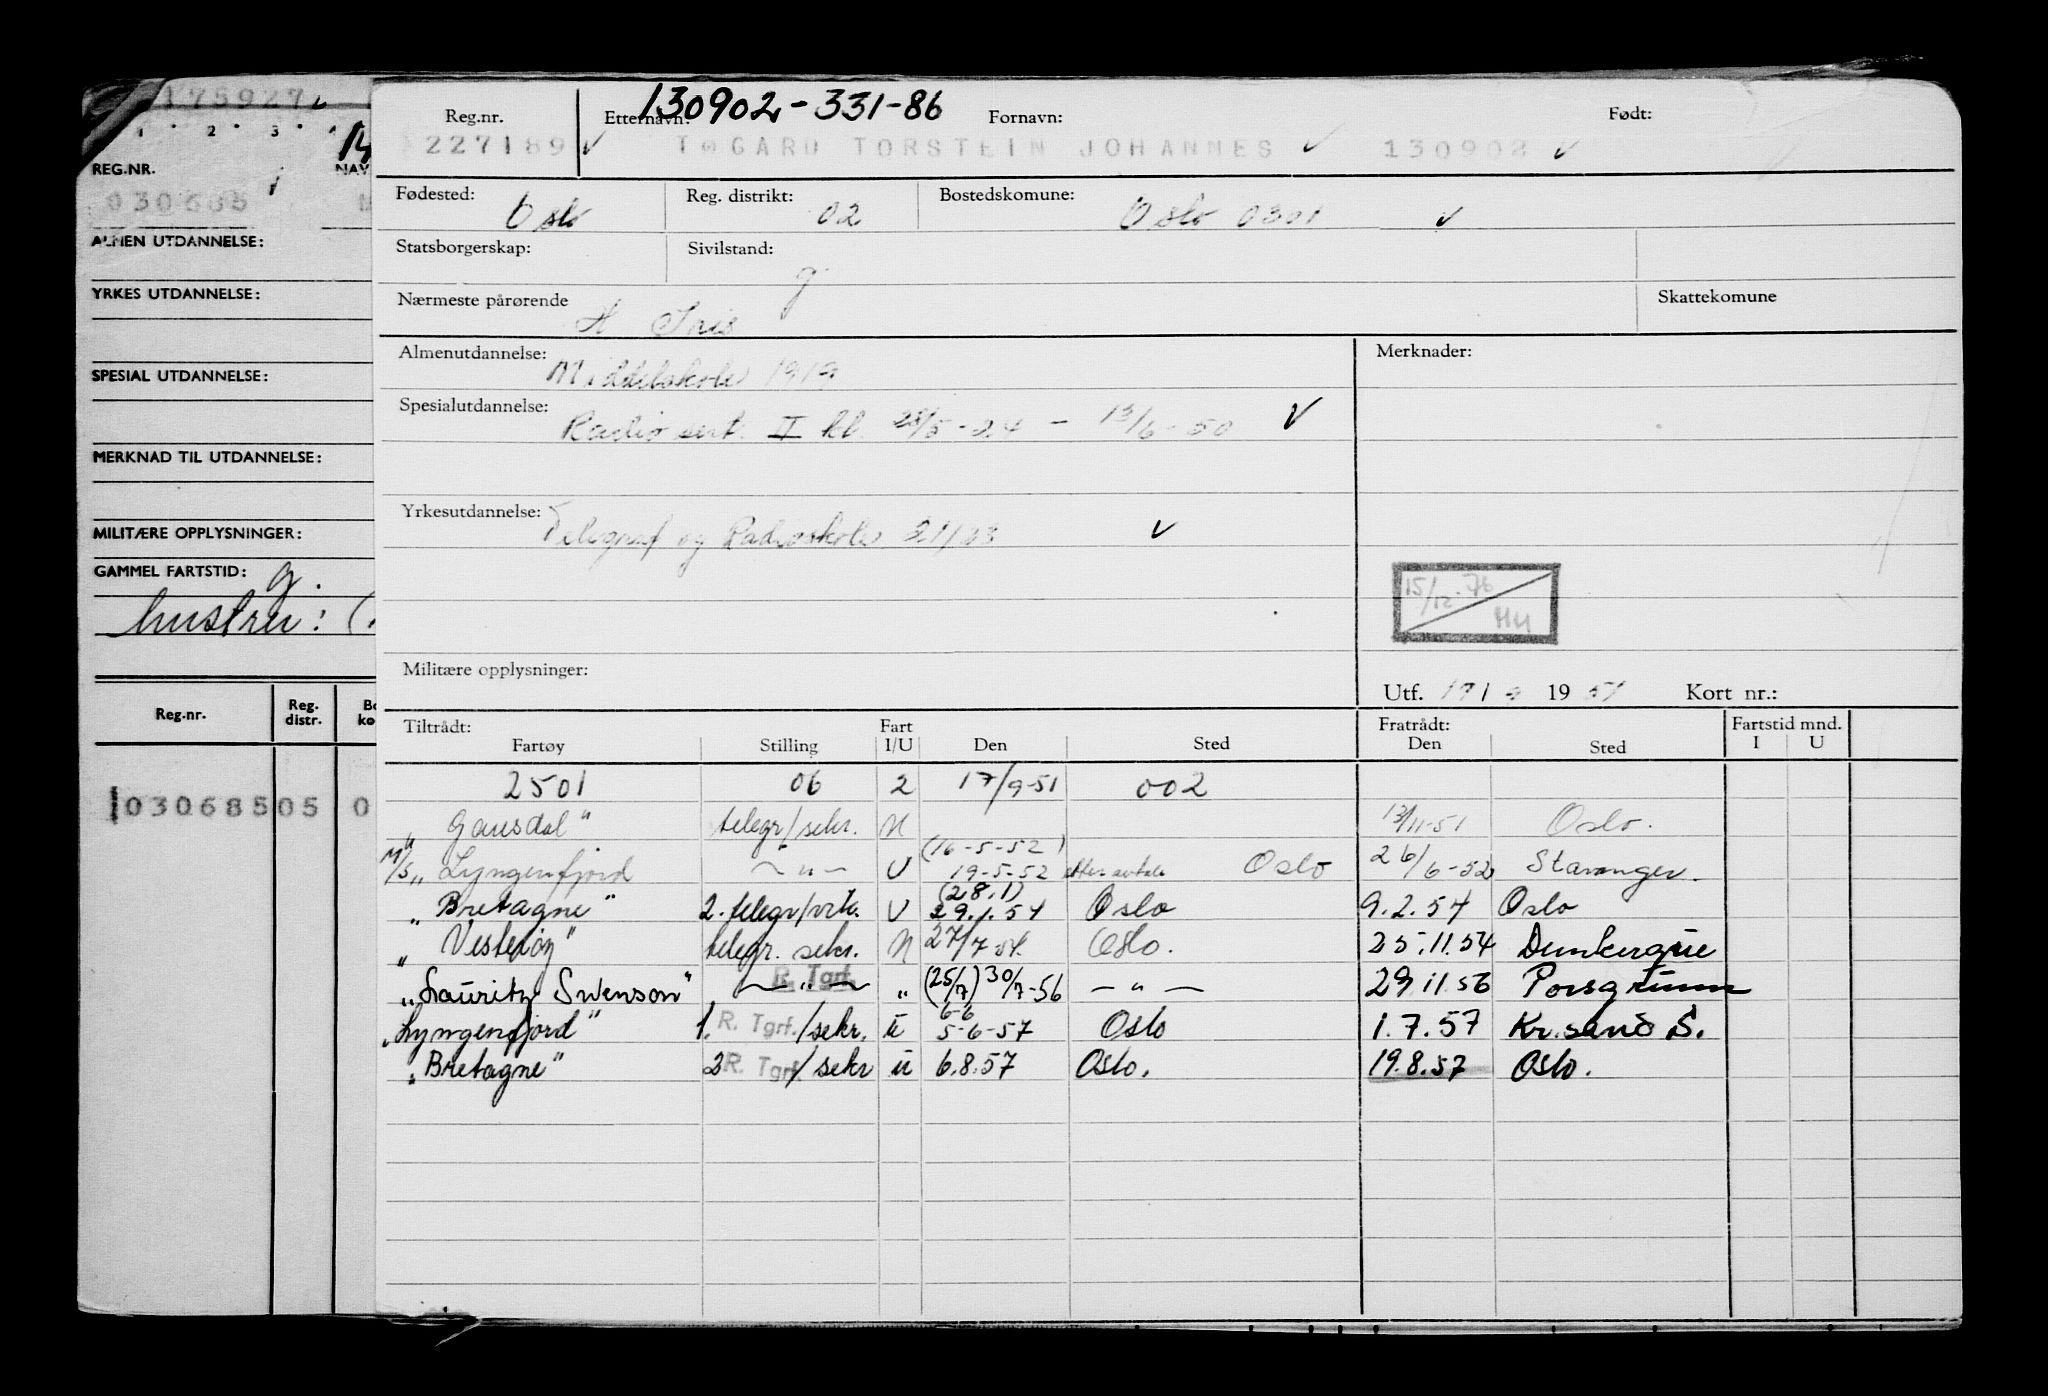 175927
1 · 2 · 3 ·
14
REG.NR.
NAV
030685
ALMEN UTDANNELSE:
YRKES UTDANNELSE:
SPESIAL UTDANNELSE:
MERKNAD TIL UTDANNELSE:
MILITÆRE OPPLYSNINGER:
GAMMEL FARTSTID: g.
hustru: (
Reg.nr. Reg. distr.
03068505 0
130902-331-86
Reg.nr. Etternavn: Fornavn: Født:
227189 ✓ TØGARD TORSTEIN JOHANNES ✓ 130902 ✓
Fødested: Oslo Reg. distrikt: 02 Bostedskomune: Oslo 0301 ✓
Statsborgerskap: Sivilstand: g
Nærmeste pårørende Skattekomune
Almenutdannelse: Middelskole 1919 Merknader:
Spesialutdannelse: Radio sert. II kl. 28/5-24 - 13/6-50 ✓
Yrkesutdannelse: Telegraf og Radioskole 21/23 ✓
15/12-76
Militære opplysninger:
Utf. 17/ 9 19 51 Kort nr.:
Tiltrådt: Fart Fratrådt: Fartstid mnd.
Fartøy Stilling I/U Den Sted Den Sted I U
2501 06 2 17/9-51 002
„ Gausdal" telegr/sekr. N 13/11-51 Oslo.
(16-5-52)
M/S „Lyngenfjord" — „ — U 19-5-52 etter avtale Oslo 26/6-52 Stavanger.
(28.1)
„ Bretagne" 2. telegr/ U 29.1.54 Oslo 9.2.54 Oslo
„ Vesterøy" telegr. sekr. N 27/7-54 Oslo. 25.11.54 Dunkerque
„Lauritz Swenson" — „ — R. Tgrf. „ (25/7) 30/7-56 — " — 29.11.56 Porsgrunn
6-6
„Lyngenfjord" 1. R. Tgrf. /sekr. u 5-6-57 Oslo 1.7.57 Kr.sand S.
„Bretagne" 2 R. Tgrf. / sekr u 6.8.57 Oslo. 19.8.57 Oslo.